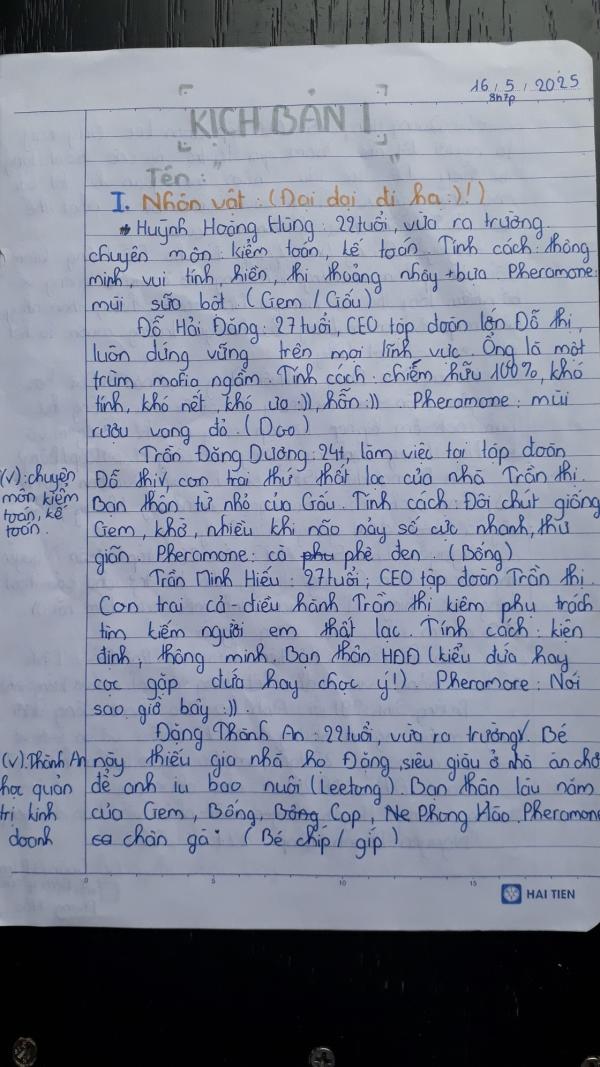 16, 5, 2025
8h7p
KỊCH BẢN 1
Tên: " "
I. Nhân vật: (Đại đại đi ha:)!)
Huỳnh Hoàng Hùng: 22 tuổi, vừa ra trường.
chuyên môn: kiểm toán, kế toán. Tính cách: thông
minh, vui tính, hiền, thi thoảng nhây + bựa. Pheramone:
mùi sữa bột. (Gem / Gấu)
Đỗ Hải Đăng: 27 tuổi, CEO tập đoàn lớn Đỗ thị,
luôn đứng vững trên mọi lĩnh vực. Ổng là một
trùm mafia ngầm. Tính cách: chiếm hữu 100%, khó
tính, khó nết, khó ưa:)), hỗn:)). Pheramone: mùi
rượu vang đỏ. (Doo)
Trần Đăng Dương: 24t, làm việc tại tập đoàn
(v): chuyên
môn kiểm
toán, kế
toán.
Đỗ thị v, con trai thứ thất lạc của nhà Trần thị.
Bạn thân từ nhỏ của Gấu. Tính cách: Đôi chút giống
Gem, khờ, nhiều khi não nảy số cực nhanh, thư
giãn. Pheramone: cà phê đen. (Bống)
Trần Minh Hiếu: 27 tuổi, CEO tập đoàn Trần thị.
Con trai cả - điều hành Trần thị kiêm phụ trách
tìm kiếm người em thất lạc. Tính cách: kiên
định, thông minh. Bạn thân HĐD (kiểu đứa hay
cọc gặp đứa hay chọc ý!). Pheramore: Nói
sao giờ bây:)).
Đặng Thành An: 22 tuổi, vừa ra trường v. Bé
(v): Thành An
học quản
trị kinh
doanh
này thiếu gia nhà họ Đặng, siêu giàu ở nhà ăn chơi
để anh iu bao nuôi (Leetong). Bạn thân lâu năm
của Gem, Bống, Cap, Ne Phong Hào. Pheramone
chân gà. (Bé chíp / gíp)
0 5 10 15
HAI TIEN